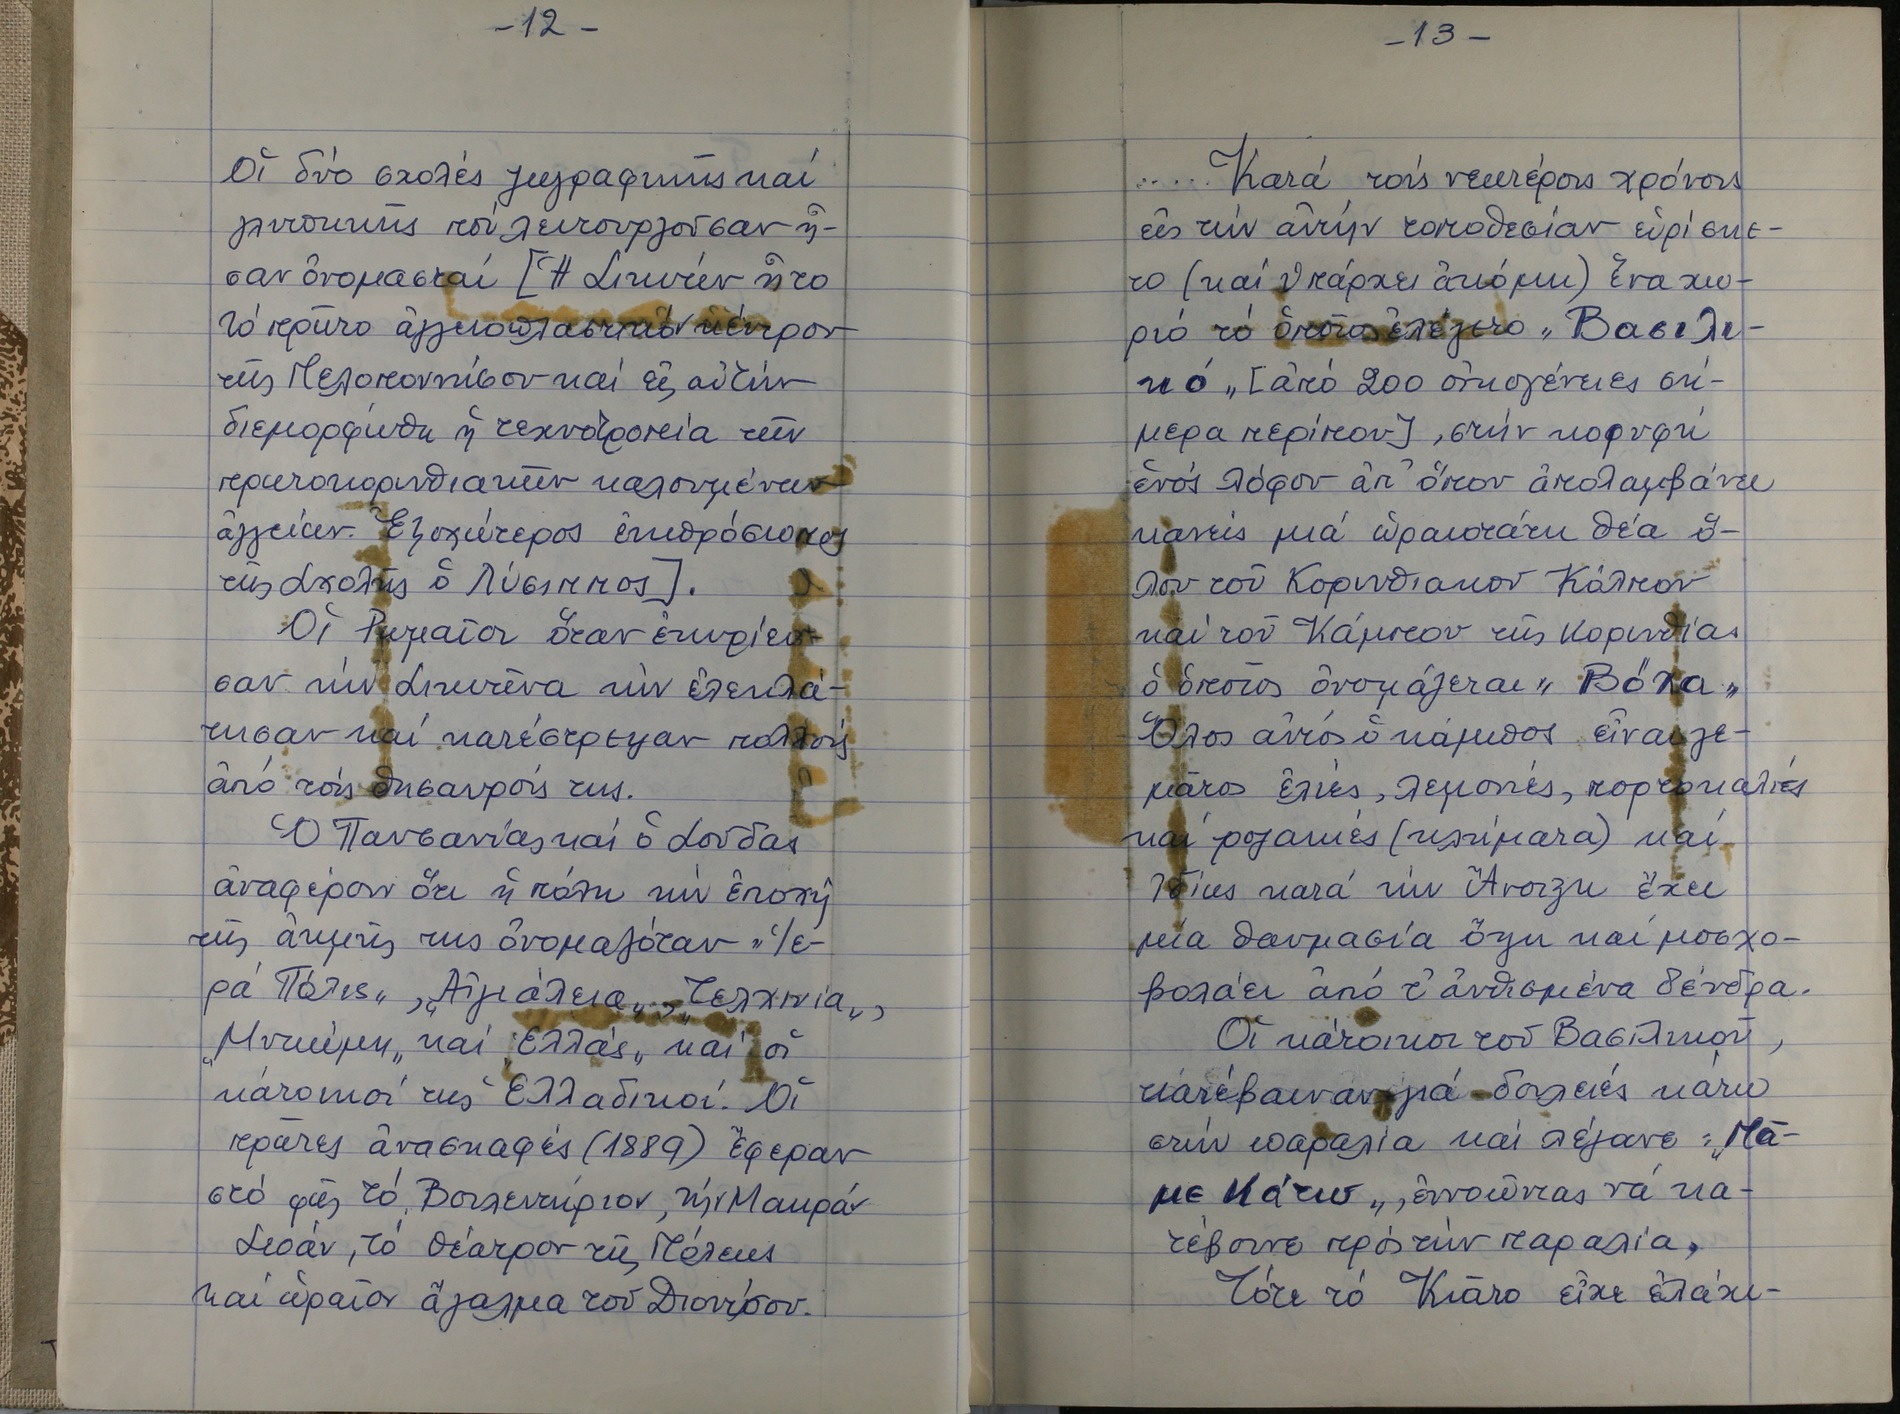 -12-
Οἱ δύο σχολές ζωγραφικῆς καί
γλυπτικῆς πού λειτουργοῦσαν ἦ-
σαν ὀνομασταί [Ἡ Σικυών ἦτο
τό πρῶτο ἀγγειοπλαστικόν κέντρον
τῆς Πελοποννήσου καί εἰς αὐτήν
διεμορφώθη ἡ τεχνοτροπία τῶν
πρωτοκορινθιακῶν καλουμένων
ἀγγείων. Ἐξοχώτερος ἐκπρόσωπος
τῆς Σχολῆς ὁ Λύσιππος].
Οἱ Ρωμαῖοι ὅταν ἐκυρίευ-
σαν τήν Σικυῶνα τήν ἐλεηλά-
τησαν καί κατέστρεψαν πολλούς
ἀπό τούς θησαυρούς της.
Ὁ Παυσανίας καί ὁ Σουΐδας
ἀναφέρουν ὅτι ἡ πόλη τήν ἐποχή
τῆς ἀκμῆς της ὀνομαζόταν „Ἱε-
ρά Πόλις„ , „Αἰγιάλεια„ , „Τελχινία„ ,
„Μυκώμη„ καί „Ἑλλάς„ καί οἱ
κάτοικοί της Ἑλλαδικοί. Οἱ
πρῶτες ἀνασκαφές (1889) ἔφεραν
στό φῶς τό Βουλευτήριον, τήν Μακράν
Στοάν, τό Θέατρον τῆς Πόλεως
καί ὡραῖον ἄγαλμα τοῦ Διονύσου.
-13-
..... Κατά τούς νεωτέρους χρόνους
εἰς τήν αὐτήν τοποθεσίαν εὑρίσκε-
το (καί ὑπάρχει ἀκόμη) ἕνα χω-
ριό τό ὁποῖον ἐλέγετο „Βασιλι-
κό„ [ἀπό 200 οἰκογένειες σή-
μερα περίπου], στήν κορυφή
ἑνός λόφου ἀπ' ὅπου ἀπολαμβάνει
κανείς μιά ὡραιοτάτη θέα ὅ-
λου τοῦ Κορινθιακοῦ Κόλπου
καί τοῦ Κάμπου τῆς Κορινθίας
ὁ ὁποῖος ὀνομάζεται „Βόχα„
Ὅλος αὐτός ὁ κάμπος εἶναι γε-
μᾶτος ἐλιές, λεμονιές, πορτοκαλιές
καί ρογακιές (κλήματα) καί
ἰδίως κατά τήν Ἄνοιξη ἔχει
μία θαυμασία ὄψη καί μοσχο-
βολάει ἀπό τ' ἀνθισμένα δένδρα.
Οἱ κάτοικοι τοῦ Βασιλικοῦ,
κατέβαιναν γιά δουλειές κάτω
στήν παραλία καί λέγανε : „Πᾶ-
με Κάτω„ , ἐννοῶντας νά κα-
τέβουνε πρός τήν παραλία.
Τότε τό Κιᾶτο εἶχε ἐλάχι-